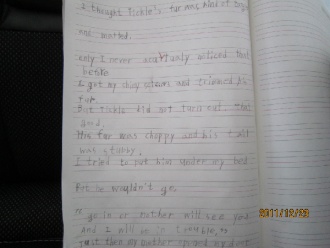 I thought Tickle's fur was kind of long
and matted.
only I never actually noticed that
before
I got my sharp scissors and trimmed his
fur
But Tickle did not turn out that
good.
His fur was choppy and his tail
was stubby.
I tried to put him under my bed
But he wouldn't go.
"go in or mother will see you
and I will be in trouble,"
Just then my mother opened my door
2011/12/23